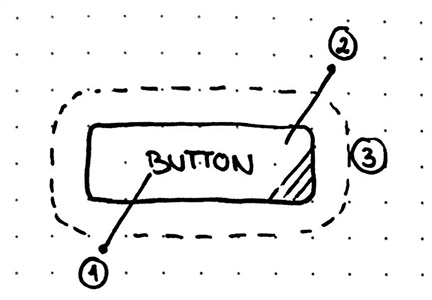 2
BUTTON
3
1